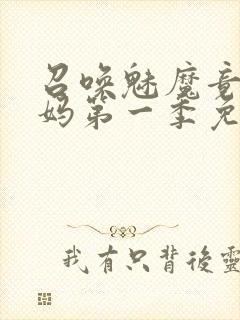 召喚魅魔竟
妈第一季免
我有只背後靈